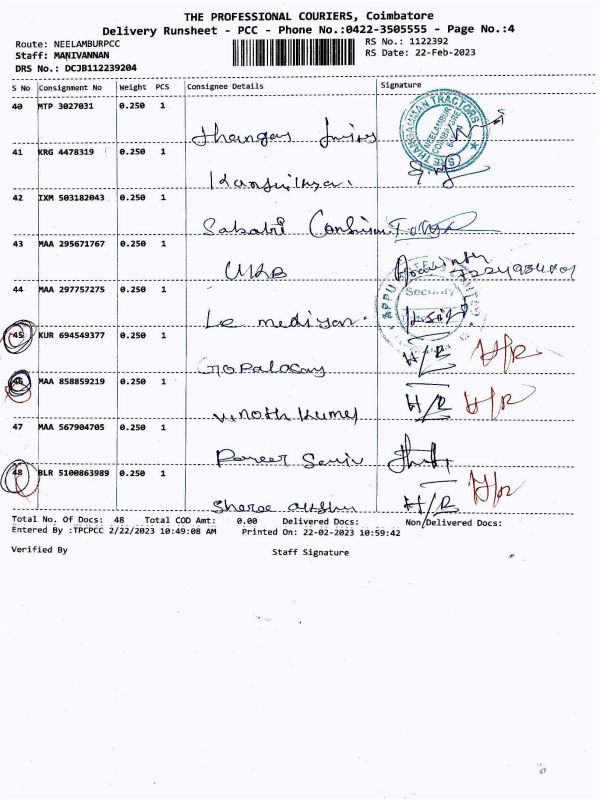 THE PROFESSIONAL COURIERS, Coimbatore
Delivery Runsheet - PCC - Phone No.:0422-3505555 - Page No.:4
Route: NEELAMBURPCC RS No.: 1122392
Staff: MANIVANNAN RS Date: 22-Feb-2023
DRS No.: DCJB112239204
S No Consignment No Weight PCS Consignee Details Signature
40 MTP 3027031 0.250 1
SREE THANGAMMAN TRACTORS NEELAMBUR COIMBATORE
41 KRG 4478319 0.250 1
42 IXM 503182043 0.250 1
Sababi
43 MAA 295671767 0.250 1
UKB
44 MAA 297757275 0.250 1
APPU Security
Le mediyan
45 KUR 694549377 0.250 1
Gopalasay H/R H/R
46 MAA 858859219 0.250 1
Vinoth Kumar H/R H/R
47 MAA 567904705 0.250 1
48 BLR 5100863989 0.250 1
Sharee H/R H/R
Total No. Of Docs: 48 Total COD Amt: 0.00 Delivered Docs: Non Delivered Docs:
Entered By :TPCPCC 2/22/2023 10:49:08 AM Printed On: 22-02-2023 10:59:42
Verified By Staff Signature